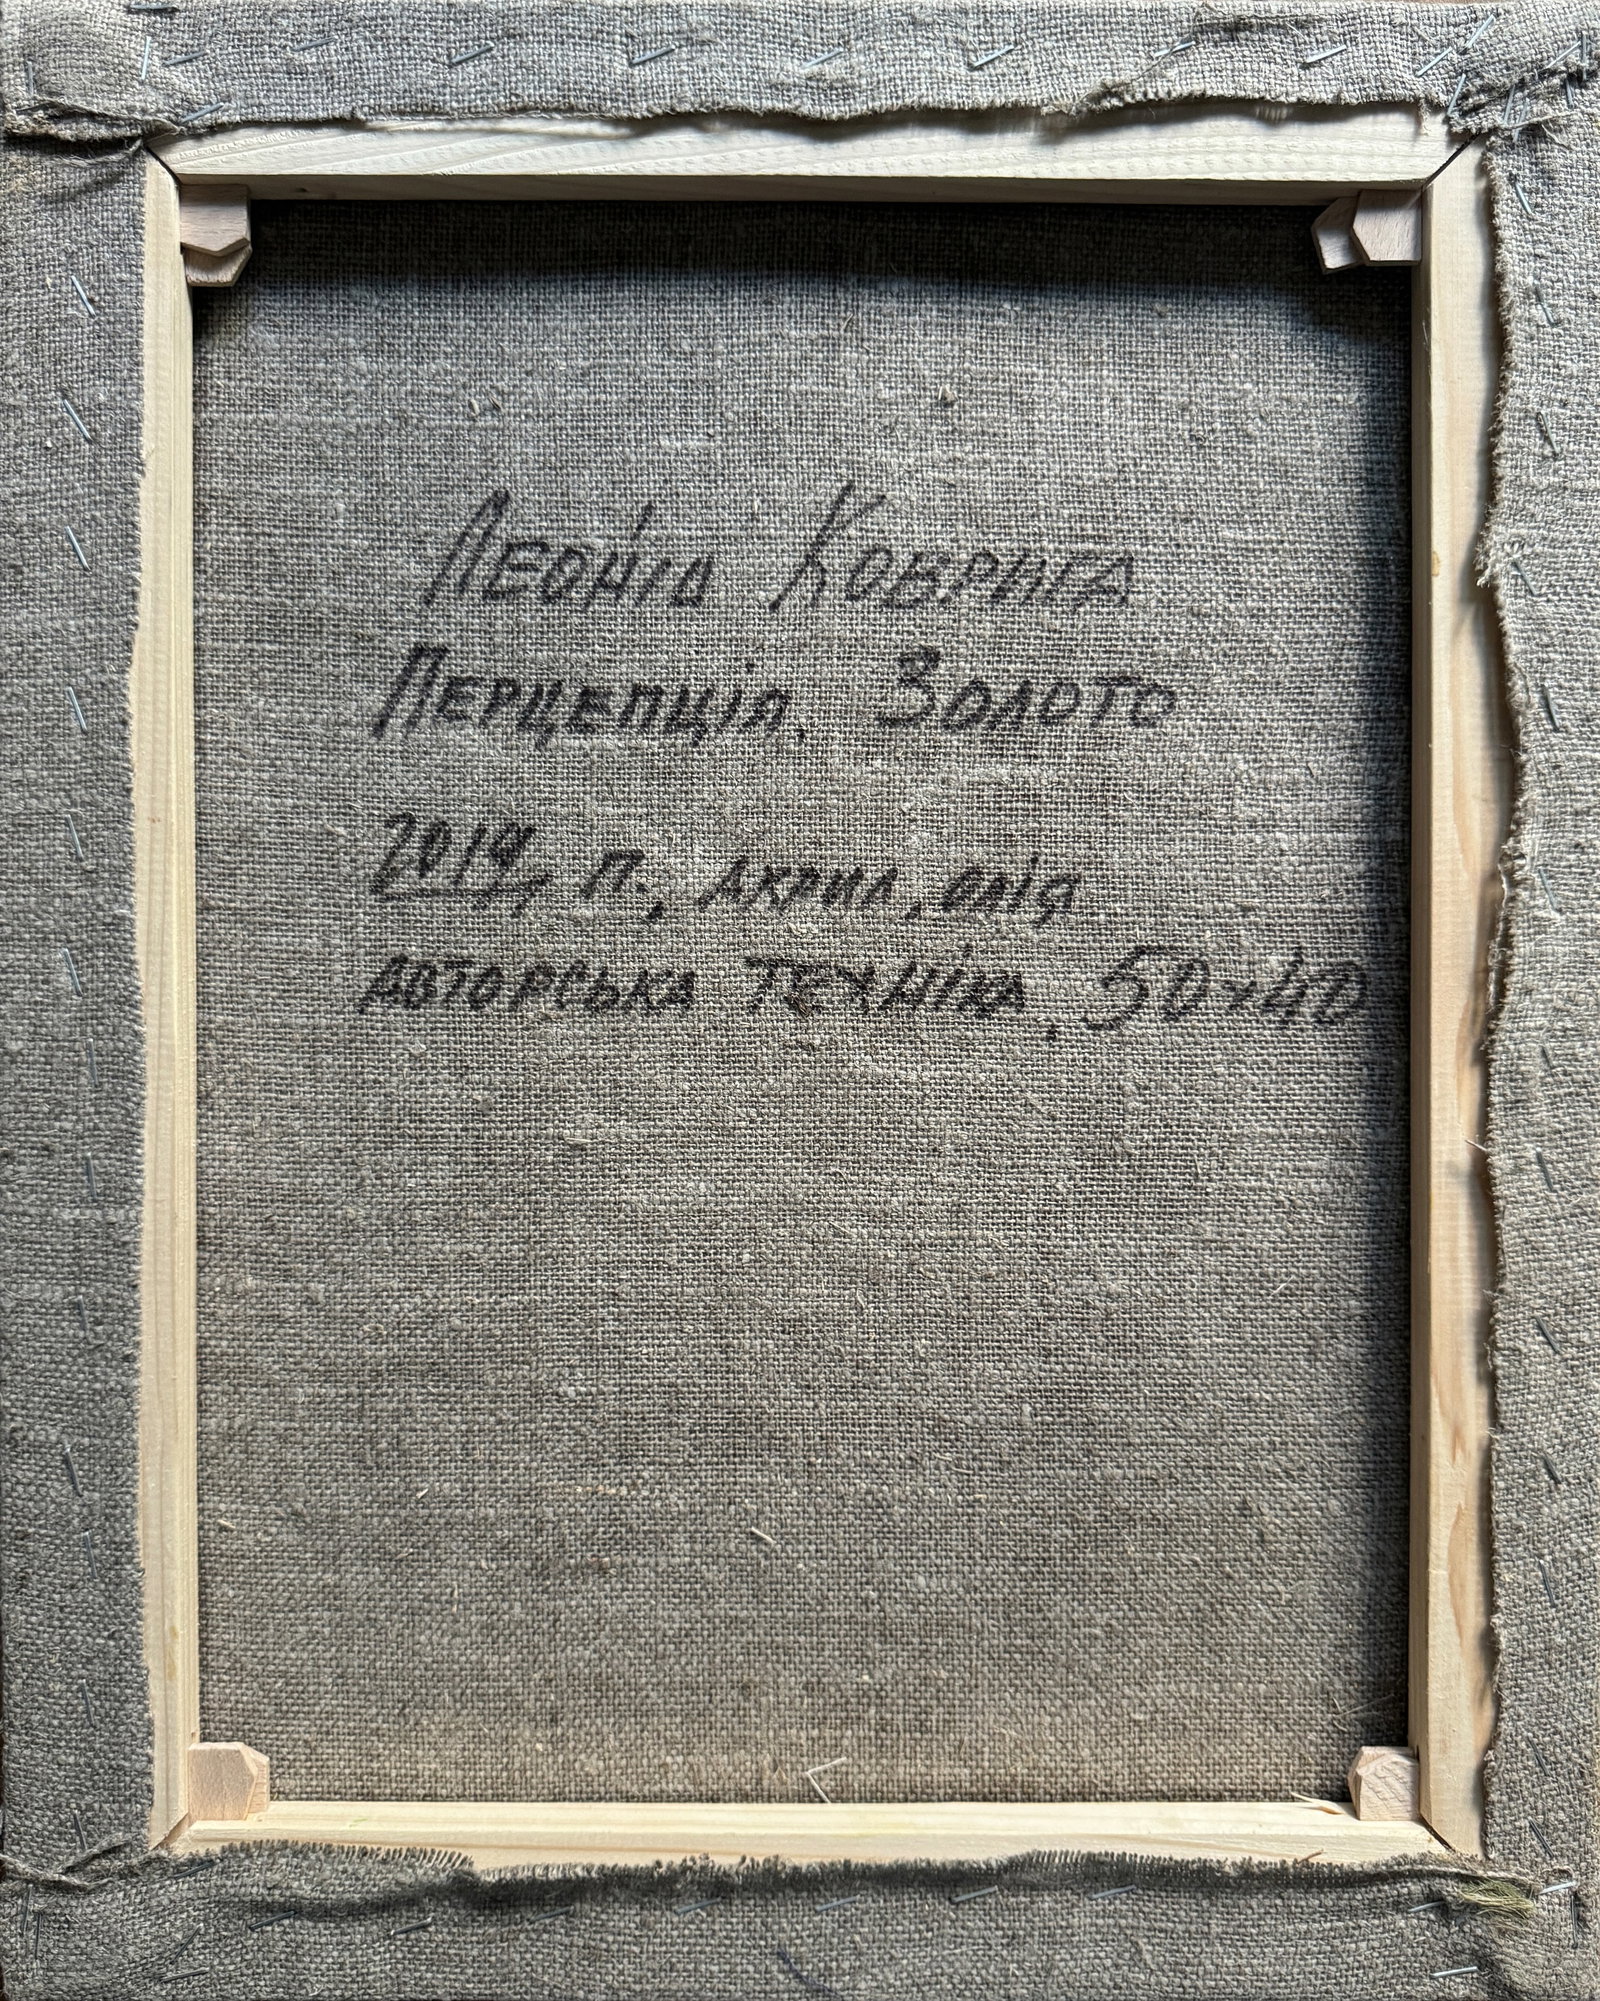 Леонід Кобрига
Перцепція. Золото
2019, п., акрил, олія
авторська техніка, 50х40